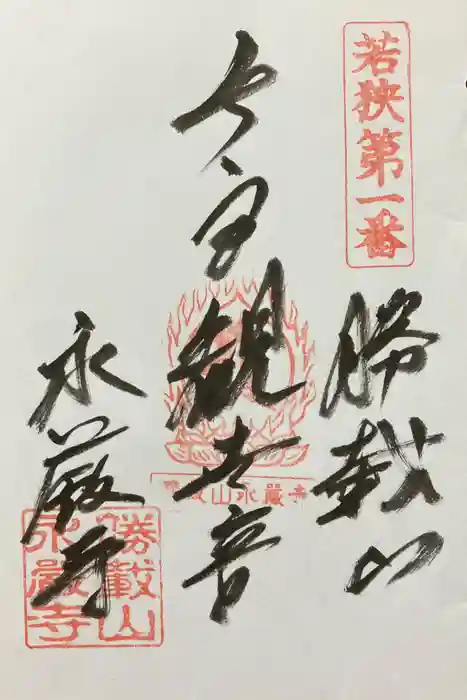 若狭第一番
勝載山
観世音
勝載山永嚴寺
永厳寺
勝載山
永嚴寺